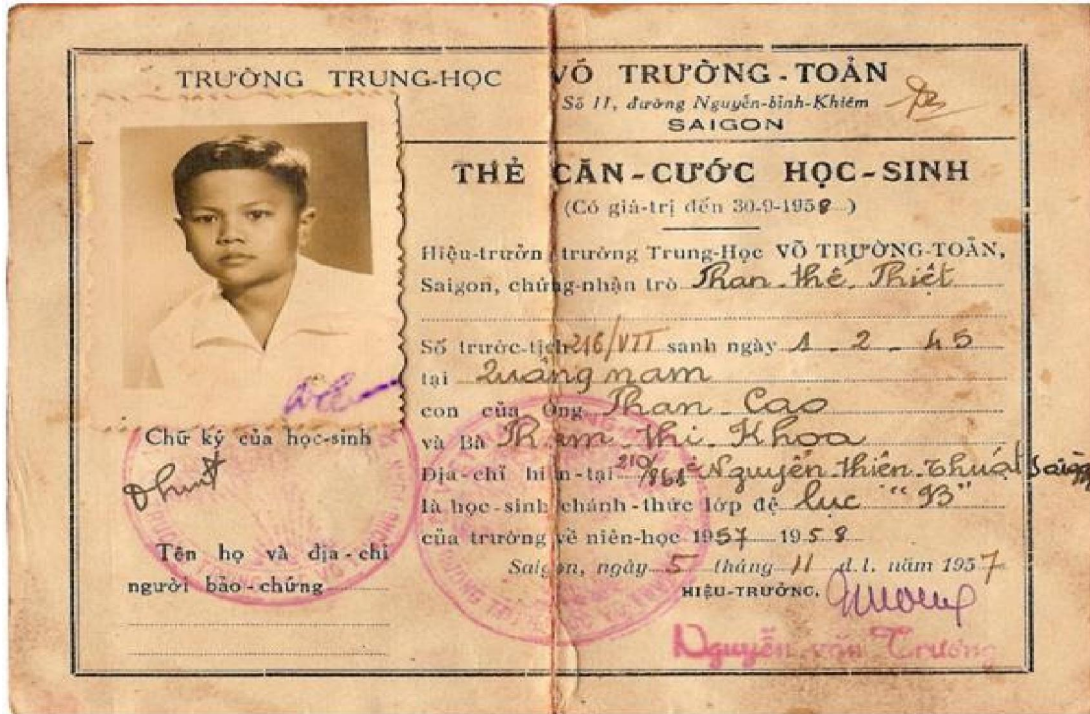 TRƯỜNG TRUNG-HỌC VÕ TRƯỜNG-TOẢN
Số 11, đường Nguyễn-bỉnh-Khiêm
SAIGON
THẺ CĂN-CƯỚC HỌC-SINH
(Có giá-trị đến 30-9-1958)
Hiệu-trưởn trường Trung-Học VÕ TRƯỜNG-TOẢN,
Saigon, chứng-nhận trò Phan thế Thiệt
Số trước-tịch 216/VTT sanh ngày 1-2-45
tại Quảng nam
con của Ông Phan Cao
và Bà Phạm thị Khoa
Địa-chỉ hiện-tại Nguyễn thiện Thuật Saigon
là học-sinh chánh-thức lớp đệ lục "B"
của trường về niên-học 1957 1958
Saigon, ngày 5 tháng 11 d.l. năm 1957
HIỆU-TRƯỞNG,
Nguyễn văn Trương
Chữ ký của học-sinh
Tên họ và địa-chỉ
người bảo-chứng